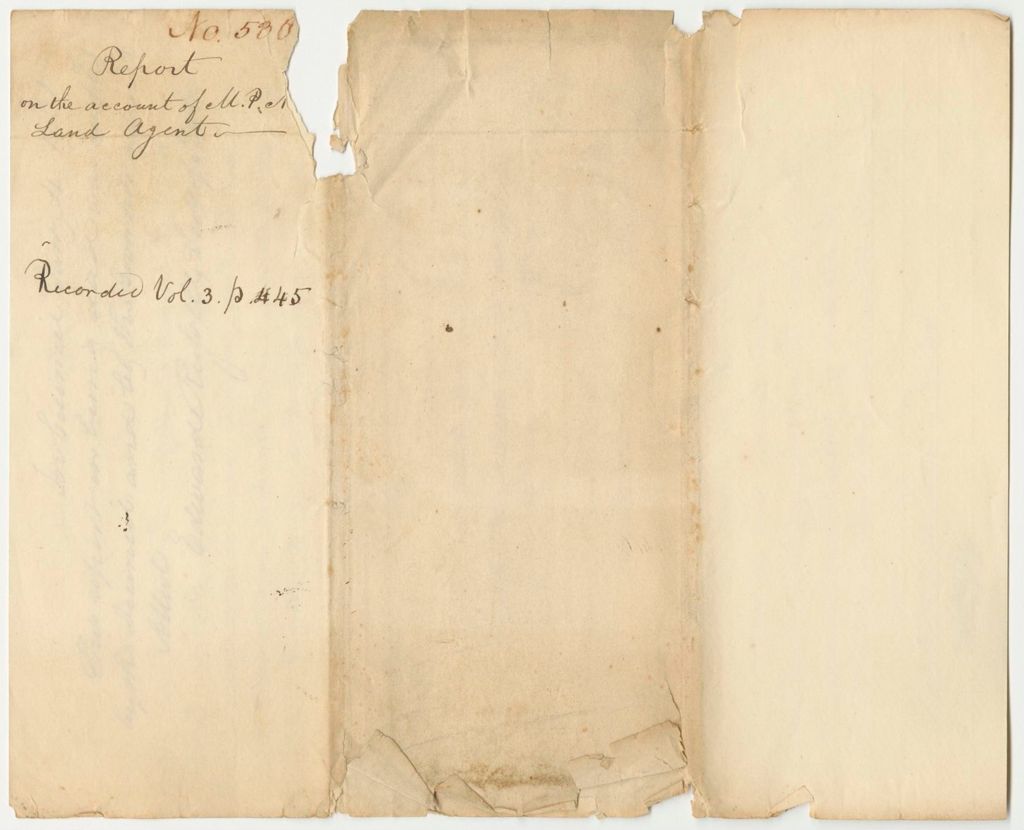 No. 580
Report
on the account of M. P. N
Land Agent
Recorded Vol. 3. p. 445